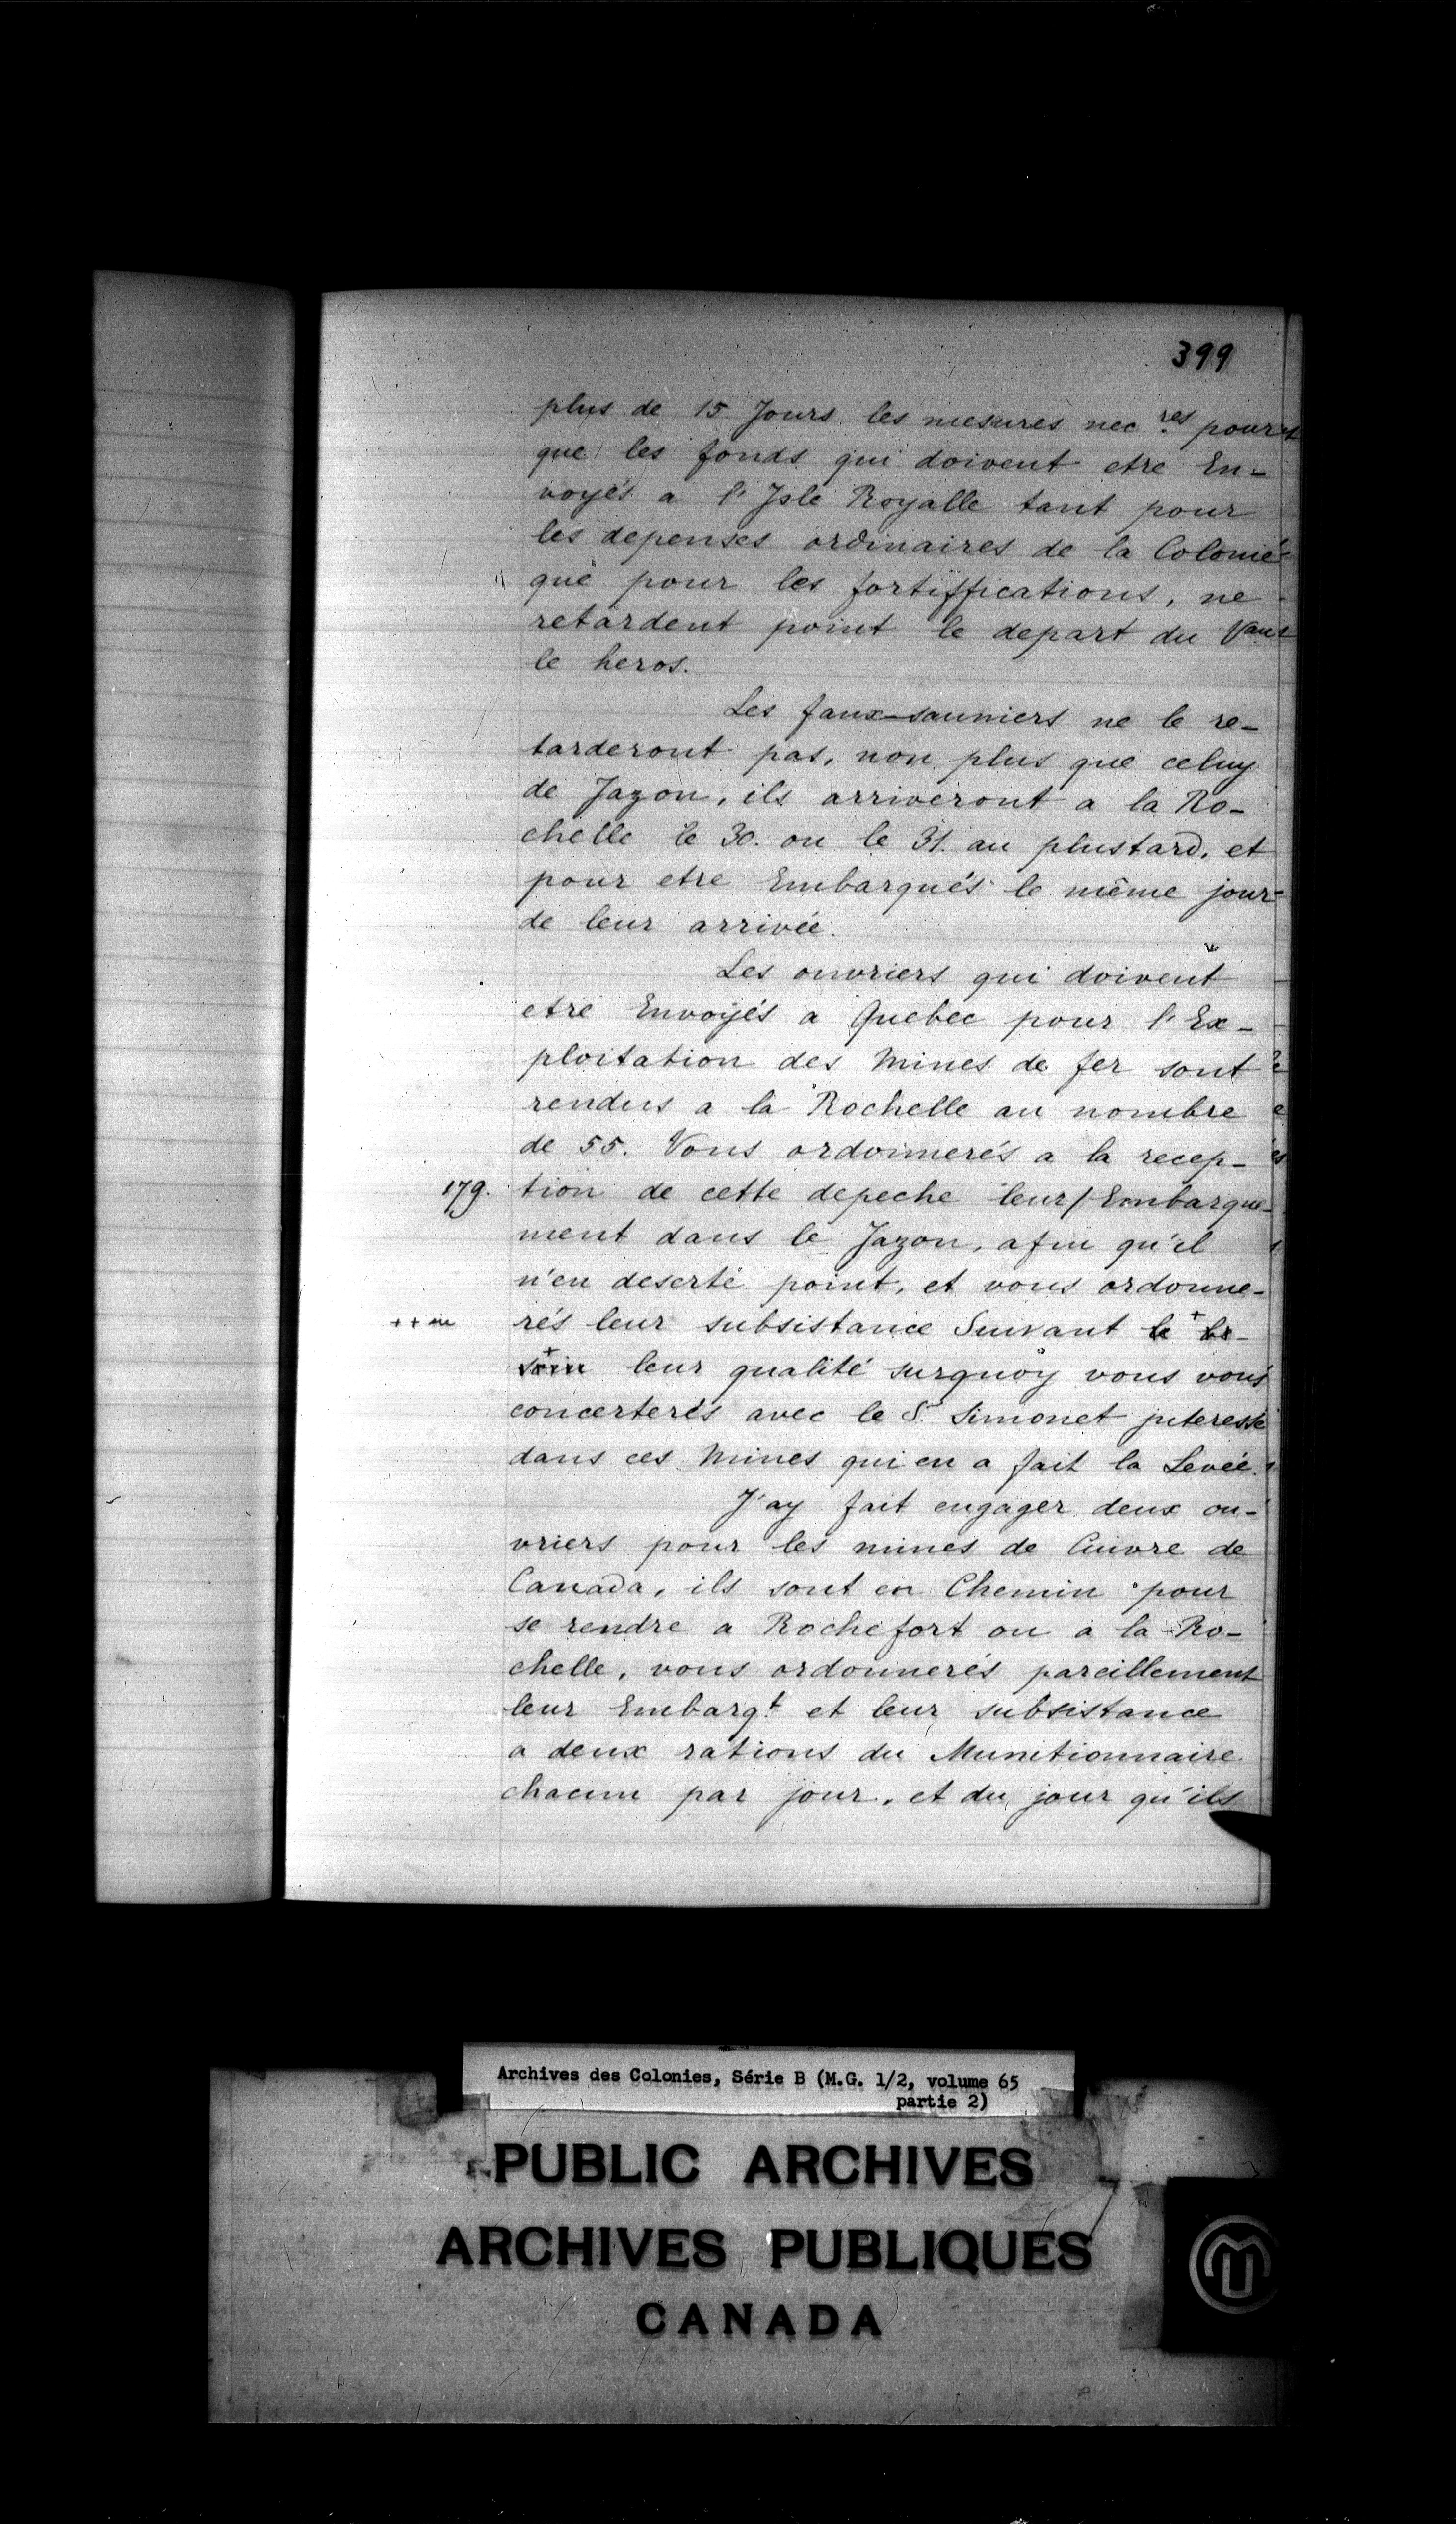 399
plus de 15 Jours les mesures nec.res pour
que les fonds qui doivent etre En-
voyés a l'Isle Royalle tant pour
les depenses ordinaires de la Colonie
que pour les fortiffications, ne
retardent point le depart du Vau
le heros.
Les faux-sauniers ne le re-
tarderont pas, non plus que celuy
de Jazon, ils arriveront a la Ro-
chelle le 30. ou le 31. au plustard, et
pour etre Embarqués le même jour
de leur arrivée.
Les ouvriers qui doivent
etre Envoyés a Quebec pour l'Ex-
ploitation des Mines de fer sont
rendus a la Rochelle au nombre
de 55. Vous ordonnerés a la recep-
179. tion de cette depeche leur/Embarque-
ment dans le Jazon, afin qu'il
n'en deserte point, et vous ordonne-
rés leur subsistance Suivant le be-
soin leur qualité surquoy vous vous
concerterés avec le S. Simonet jnteressé
dans ces Mines qui en a fait la Levée.
J'ay fait engager deux ou-
vriers pour les mines de Cuivre de
Canada, ils sont en Chemin pour
se rendre a Rochefort ou a la Ro-
chelle, vous ordonnerés pareillement
leur Embarq.t et leur subsistance
a deux rations du Munitionnaire
chacun par jour, et du jour qu'ils
Archives des Colonies, Série B (M.G. 1/2, volume 65
partie 2)
PUBLIC ARCHIVES
ARCHIVES PUBLIQUES
CANADA